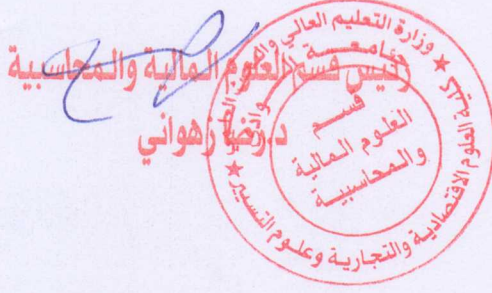 رئيس قسم العلوم المالية والمحاسبية
د.رضا زهواني
وزارة التعليم العالي
جامعة
كلية العلوم الاقتصادية والتجارية وعلوم التسيير
قسم
العلوم المالية
والمحاسبية